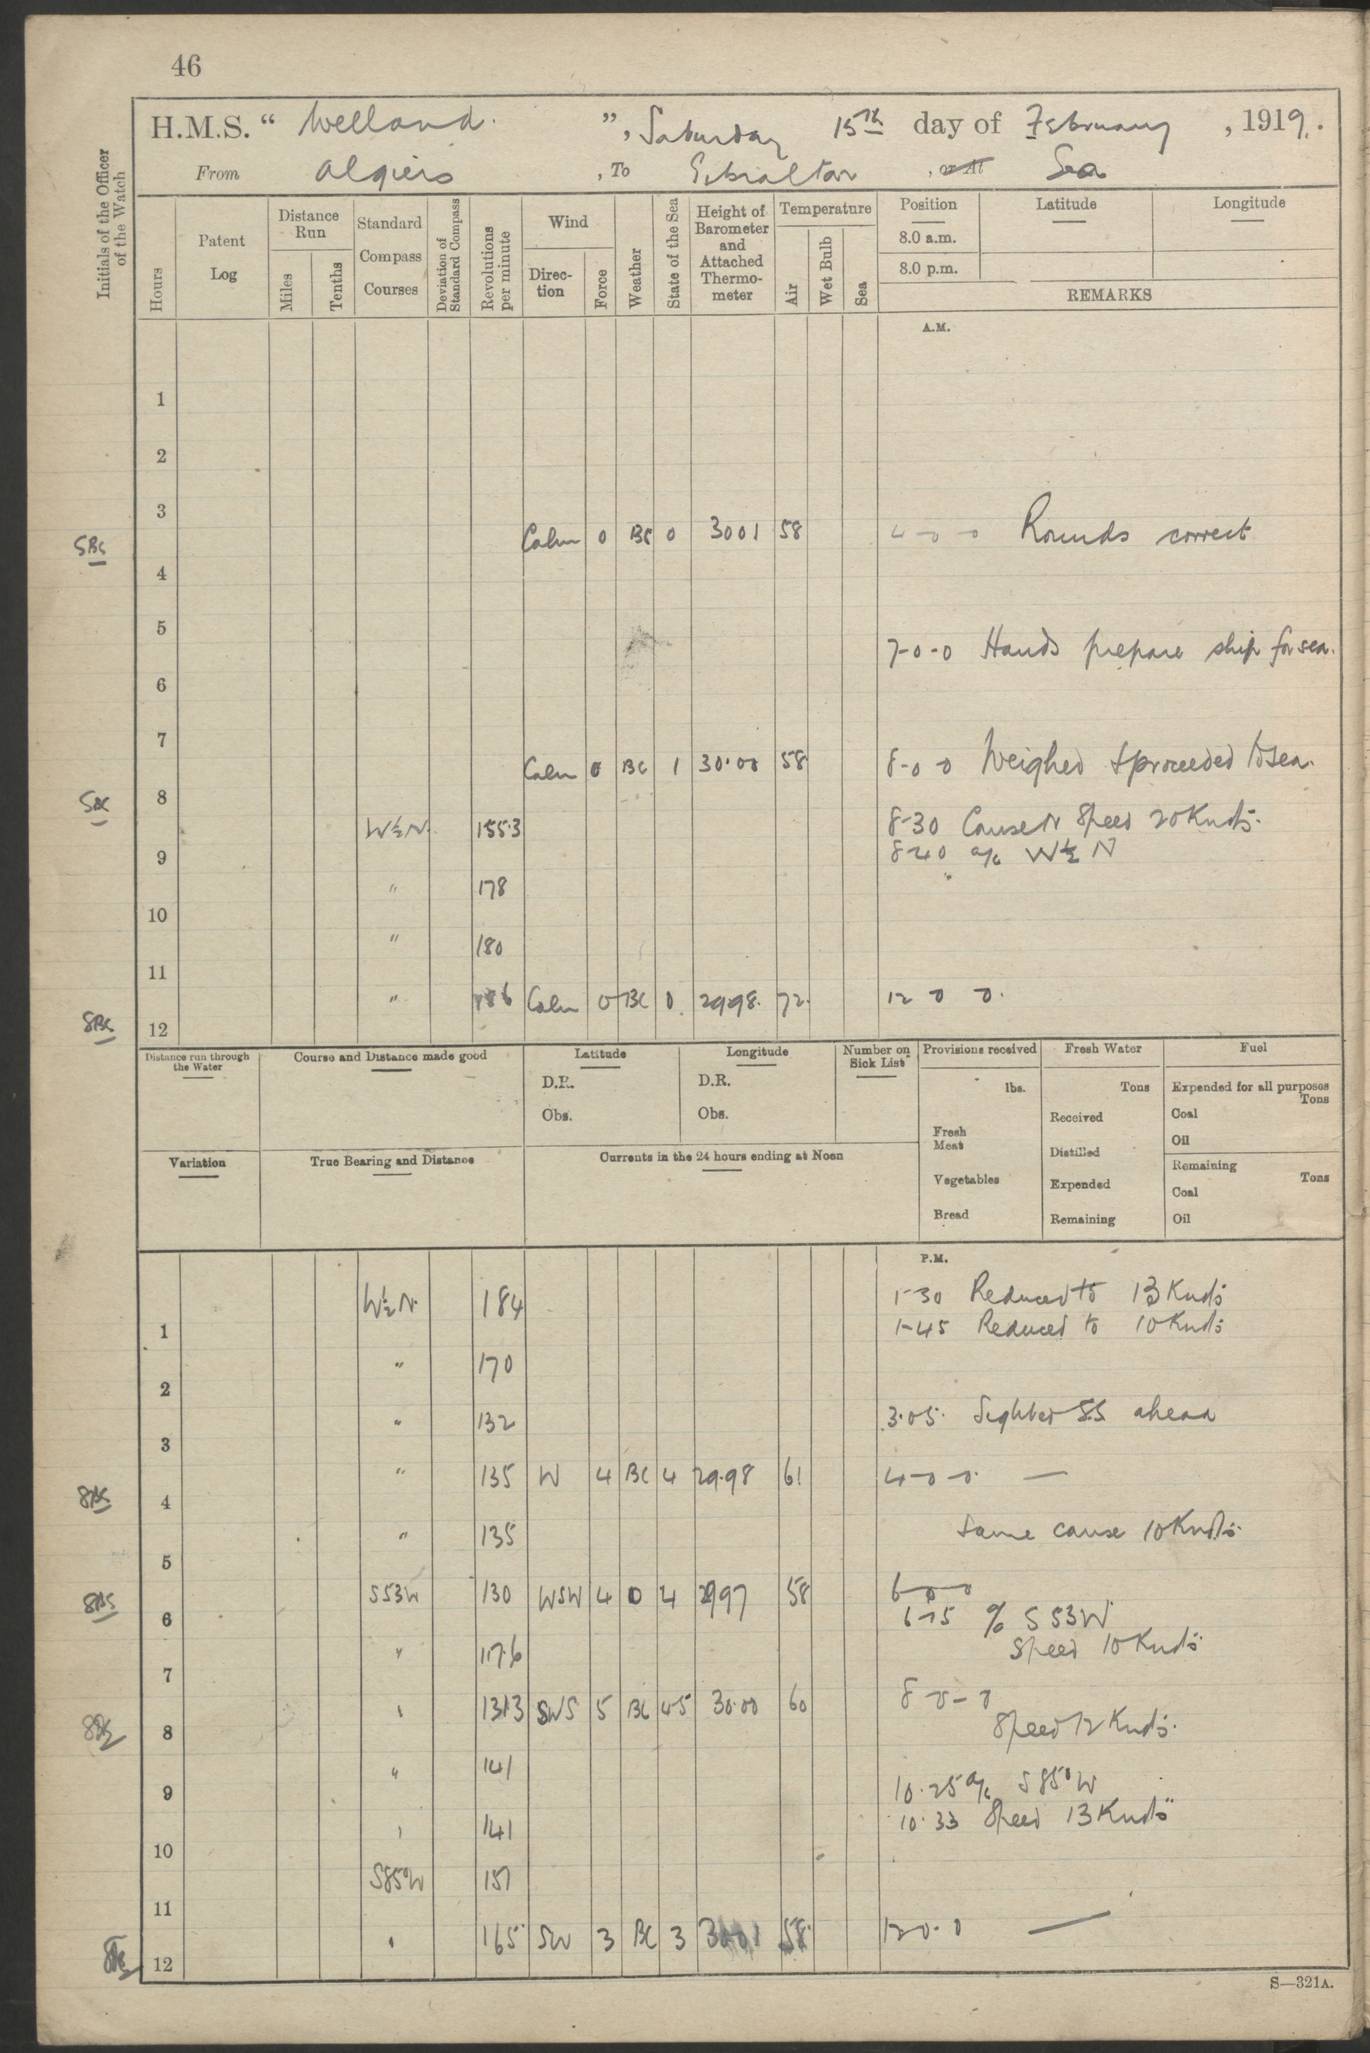 46
H.M.S. “ Welland. ”, Saturday 15th day of February , 1919.
From Algiers , To Gibraltar , or At Sea
Initials of the Officer of the Watch
Hours
Patent Log
Distance Run
Miles
Tenths
Standard Compass Courses
Deviation of Standard Compass
Revolutions per minute
Wind
Direction
Force
Weather
State of the Sea
Height of Barometer and Attached Thermometer
Temperature
Air
Wet Bulb
Sea
Position
8.0 a.m.
8.0 p.m.
Latitude
Longitude
REMARKS
A.M.
1
2
3
SBS Calm 0 BC 0 3001 58 4-0-0 Rounds correct
4
5
7-0-0 Hands prepare ship for sea.
6
7
Calm 0 BC 1 30.00 58 8-0 0 Weighed & proceeded to sea.
8
W½N. 155.3 8-30 Course N Speed 20 Knots.
8-40 a/c W½N
9
" 178
10
" 180
11
" 186 Calm 0 BC 0 29.98. 72. 12 0 0.
SBS 12
Distance run through the Water
Course and Distance made good
Latitude
D.R.
Obs.
Longitude
D.R.
Obs.
Number on Sick List
Provisions received
lbs.
Fresh Meat
Vegetables
Bread
Fresh Water
Tons
Received
Distilled
Expended
Remaining
Fuel
Expended for all purposes
Tons
Coal
Oil
Remaining
Tons
Coal
Oil
Variation
True Bearing and Distance
Currents in the 24 hours ending at Noon
P.M.
W½N. 184 1-30 Reduced to 13 Knots
1-45 Reduced to 10 Knots
1
" 170
2
" 132 3.05. Sighted SS ahead
3
" 135 W 4 BC 4 29.98 61 4-0-0. —
SBS 4
" 135 Same course 10 Knots.
5
S53W 130 WSW 4 O 4 2997 58 6-0-0
SBS 6
6-15 a/c S53W
Speed 10 Knots
" 117.6
7
" 131.3 SWS 5 BC 45 30.00 60 8-0-0
Speed 12 Knots.
8
" 141
9
10.25 a/c S85°W
10.33 Speed 13 Knots
" 141
10
S85°W 151
11
" 165 SW 3 BC 3 3001 58. 12 0.0 —
12
S—321A.